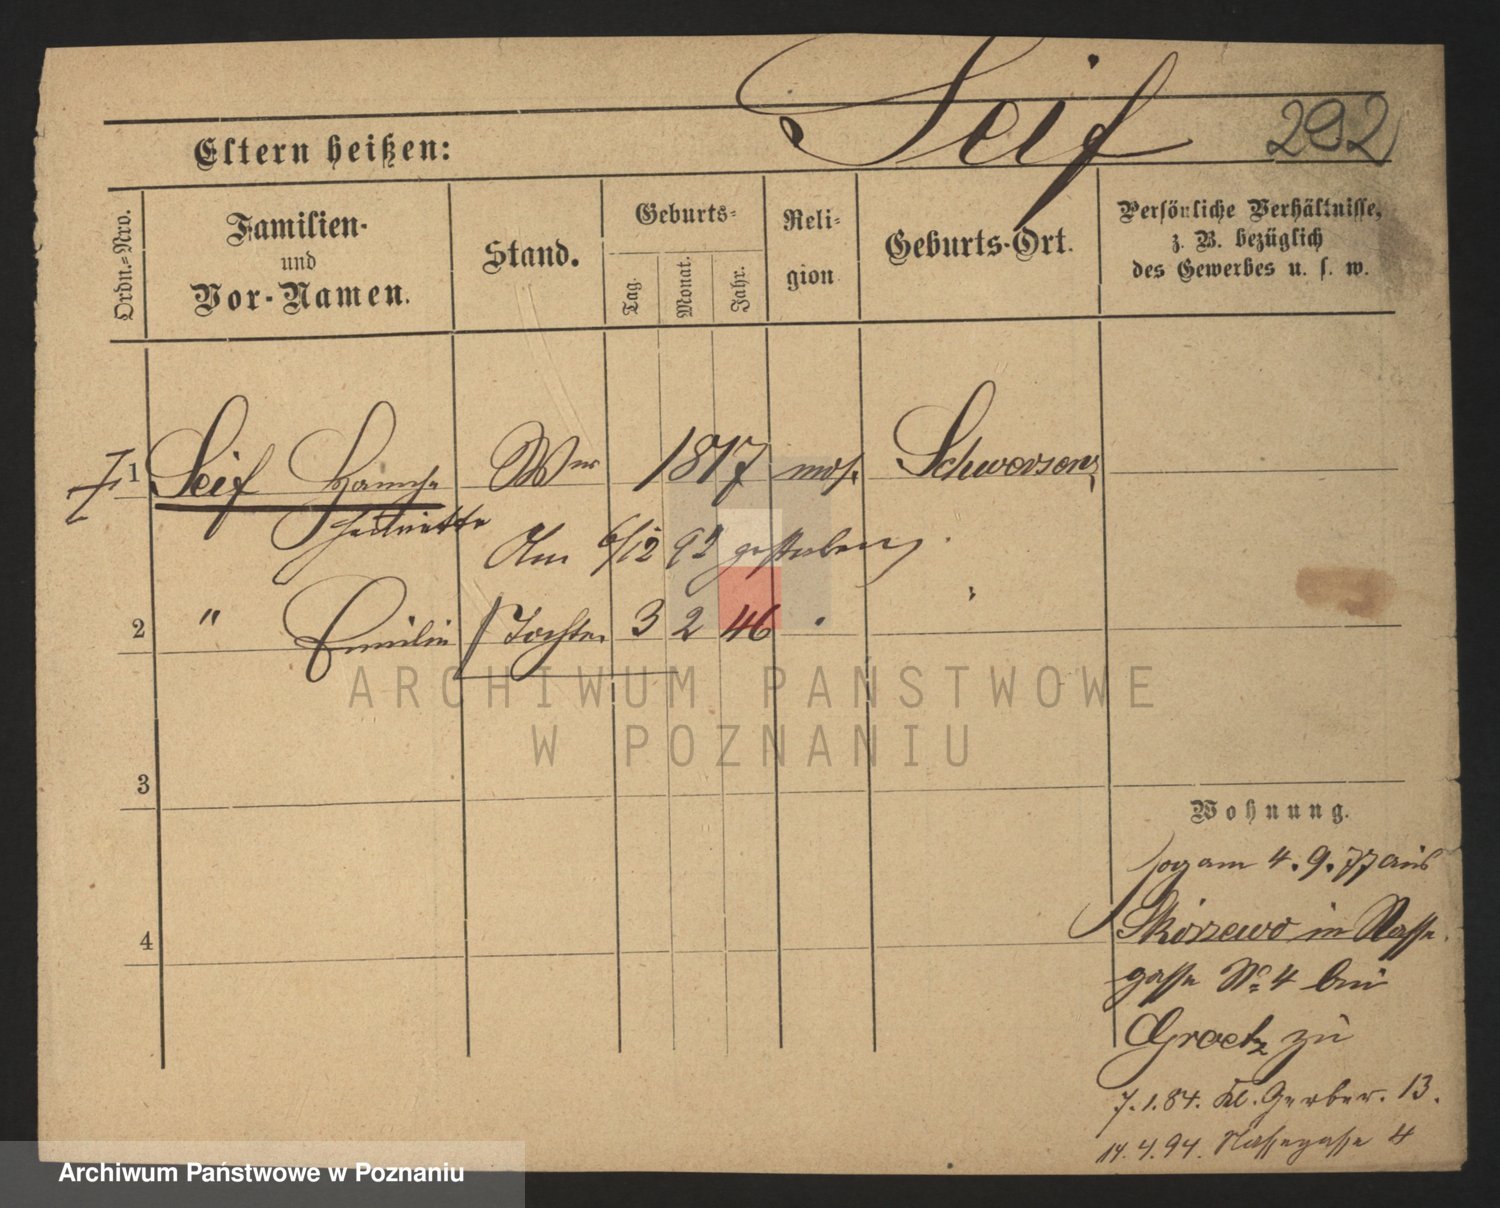 Seif 292
Eltern heißen:
Ordn.-Nro.
Familien-
und
Vor-Namen.
Stand.
Geburts-
Tag.
Monat.
Jahr.
Reli-
gion
Geburts-Ort.
Persönliche Verhältnisse,
z. B. bezüglich
des Gewerbes u. s. w.
1 Seif Wwe 1817 mos. Schwersenz
Henriette
Am 6/12 92 gestorben
2 " Emilie Tochter 3 2 46
3
4
ARCHIWUM PAŃSTWOWE
W POZNANIU
Wohnung.
zog am 4.9.77 aus
in Nasse
gasse No 4 bei
Graetz zu
7.1.84. Kl. Gerber. 13.
14.4.94. Nassegasse 4
Archiwum Państwowe w Poznaniu